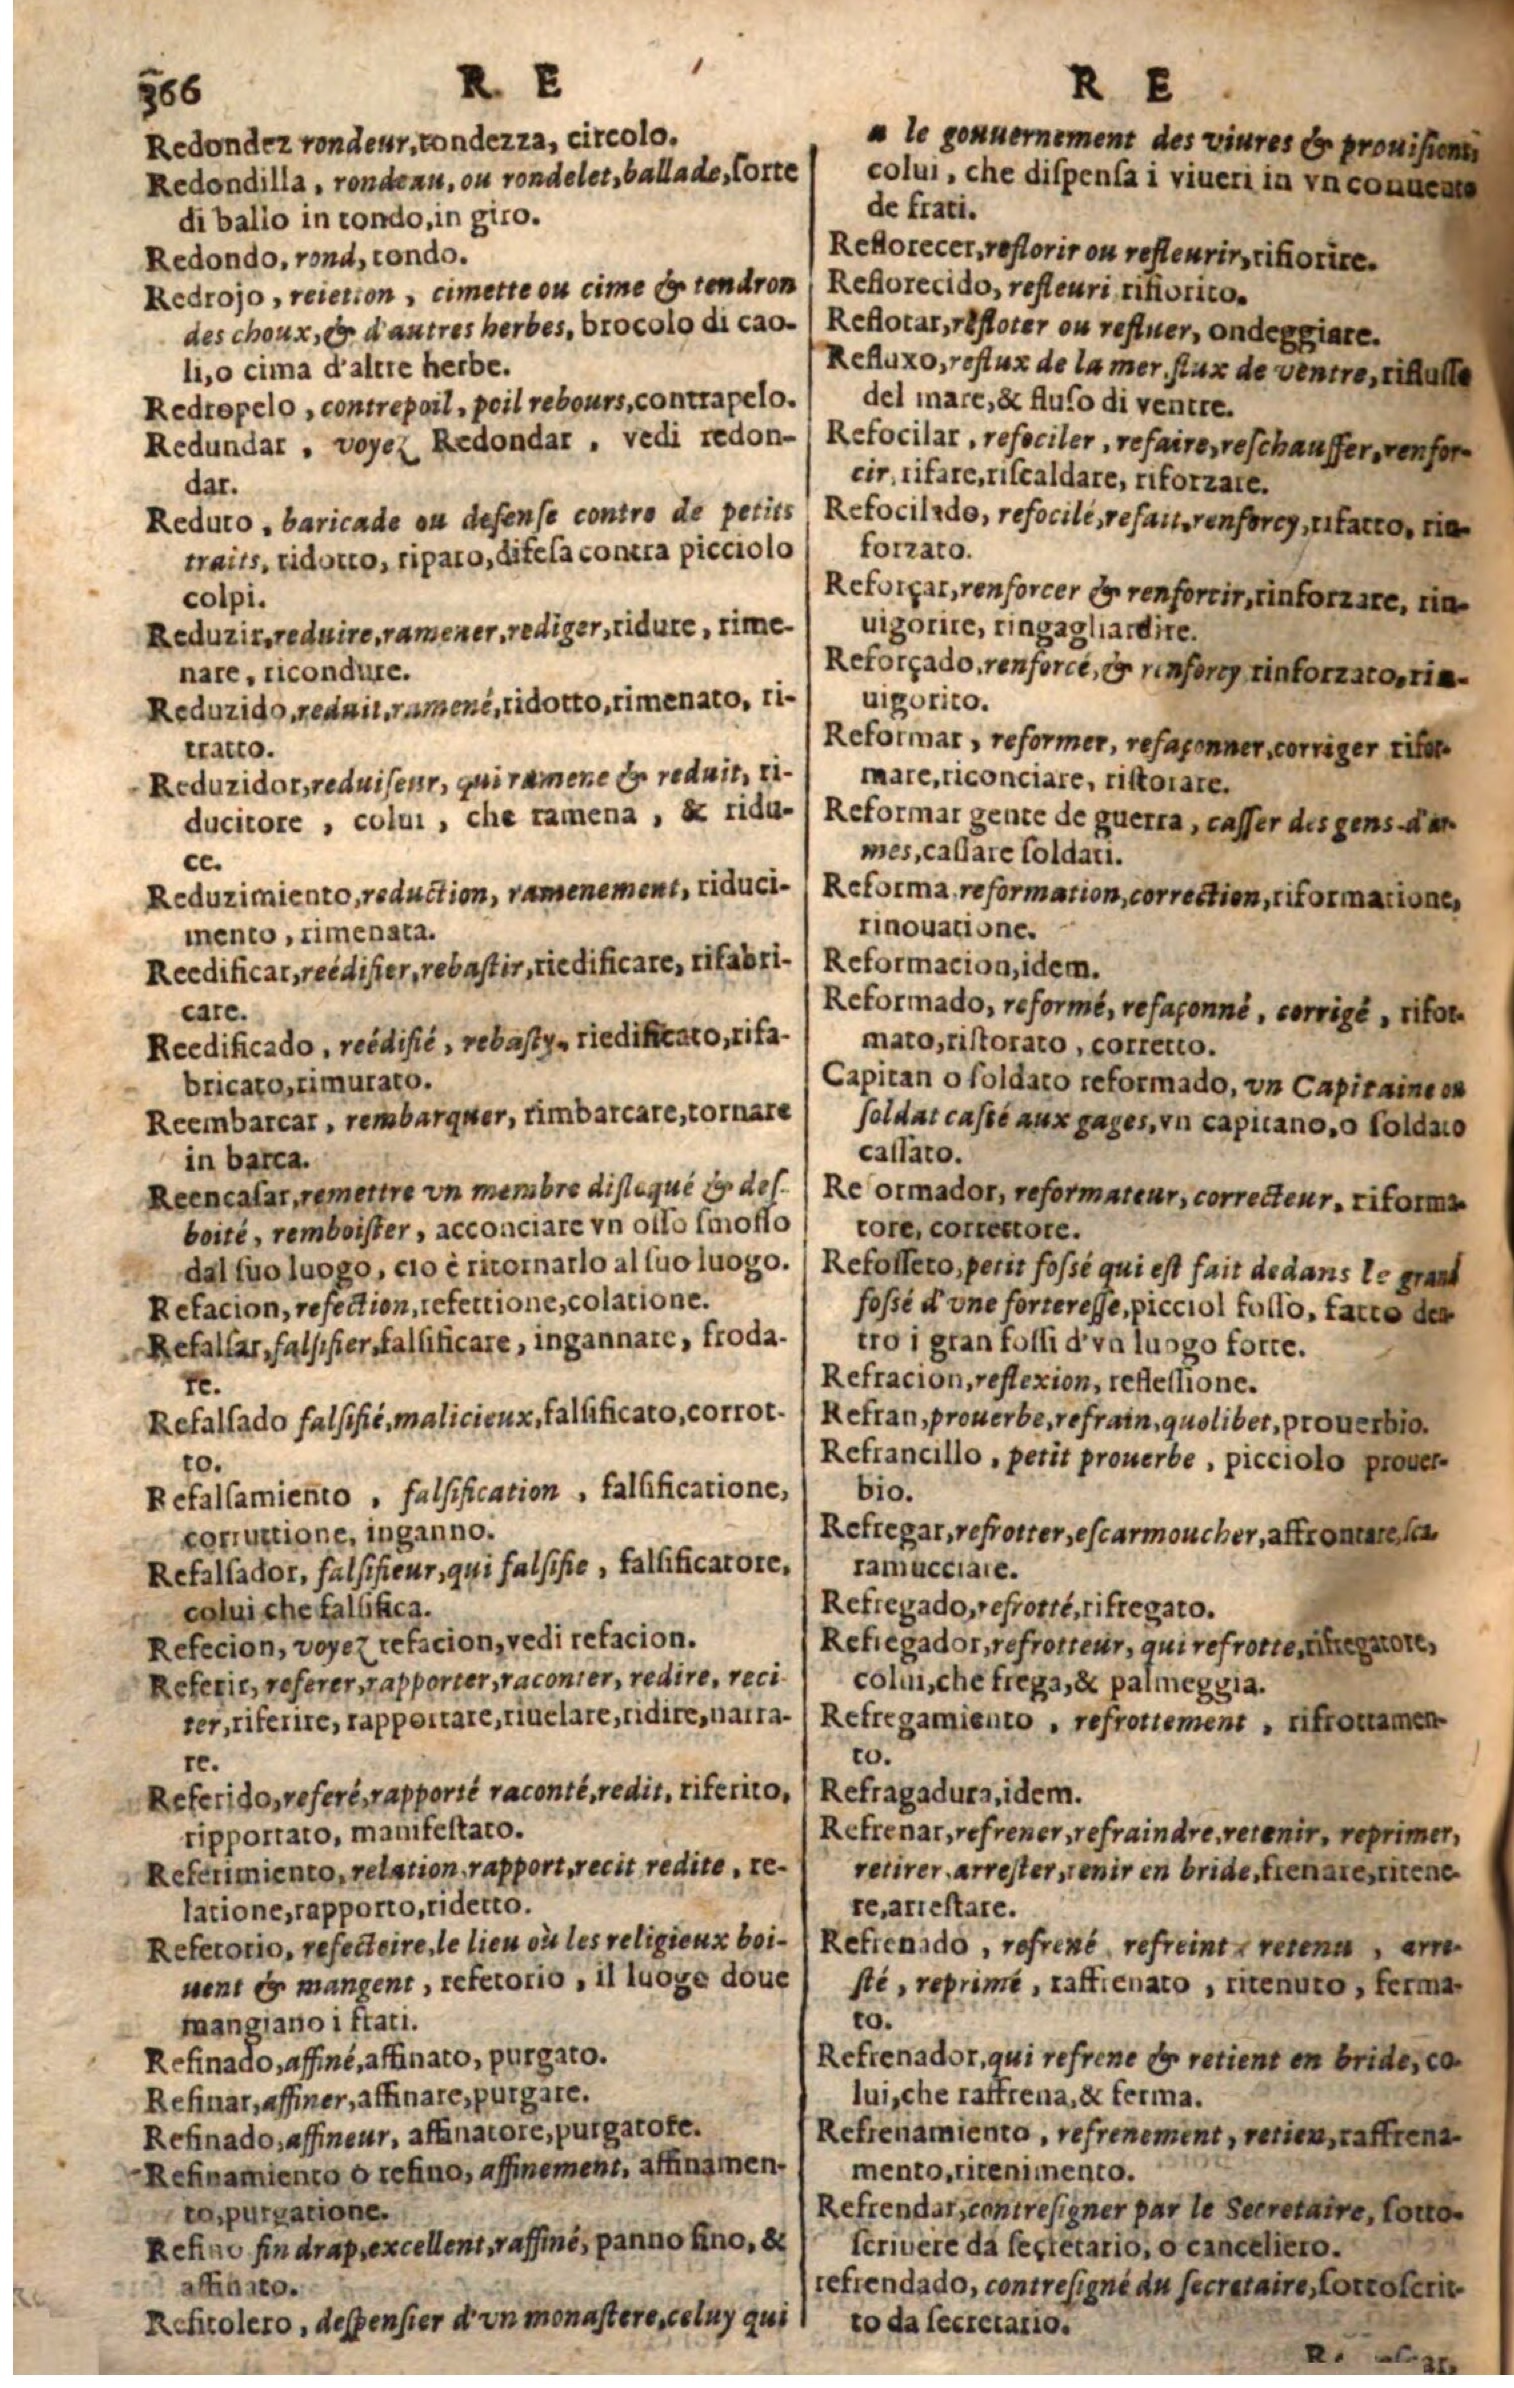 366
R E
Redondez rondeur, tondezza, circolo.
Redondilla, rondeau, ou rondelet, ballade, ſorte
di ballo in tondo, in giro.
Redondo, rond, tondo.
Redrojo, reietton, cimette ou cime & tendron
des choux, & d'autres herbes, brocolo di cao-
li, o cima d'altre herbe.
Redropelo, contrepoil, poil rebours, contrapelo.
Redundar, voyez Redondar, vedi redon-
dar.
Reduto, baricade ou defenſe contre de petits
traits, ridotto, riparo, difeſa contra picciolo
colpi.
Reduzir, reduire, ramener, rediger, ridure, rime-
nare, ricondure.
Reduzido, reduit, ramené, ridotto, rimenato, ri-
tratto.
Reduzidor, reduiſeur, qui ramene & reduit, ri-
ducitore, colui, che ramena, & ridu-
ce.
Reduzimiento, reduction, ramenement, riduci-
mento, rimenata.
Reedificar, reédifier, rebaſtir, riedificare, rifabri-
care.
Reedificado, reédifié, rebaſty, riedificato, rifa-
bricato, rimurato.
Reembarcar, rembarquer, rimbarcare, tornare
in barca.
Reencaſar, remettre vn membre diſloqué & deſ-
boité, remboiſter, acconciare vn oſſo ſmoſſo
dal ſuo luogo, cio è ritornarlo al ſuo luogo.
Refacion, refection, refettione, colatione.
Refalſar, falſifier, falſificare, ingannare, froda-
re.
Refalſado falſifié, malicieux, falſificato, corrot-
to.
Refalſamiento, falſification, falſificatione,
corruttione, inganno.
Refalſador, falſifieur, qui falſifie, falſificatore,
colui che falſifica.
Refecion, voyez refacion, vedi refacion.
Referir, referer, rapporter, raconter, redire, reci
ter, riferire, rapportare, riuelare, ridire, narra-
re.
Referido, referé, rapporté raconté, redit, riferito,
ripportato, manifeſtato.
Referimiento, relation, rapport, recit redite, re-
latione, rapporto, ridetto.
Refetorio, refectoire, le lieu où les religieux boi-
uent & mangent, refetorio, il luogo doue
mangiano i frati.
Refinado, affiné, affinato, purgato.
Refinar, affiner, affinare, purgare.
Refinado, affineur, affinatore, purgatore.
Refinamiento o refino, affinement, affinamen-
to, purgatione.
Refino fin drap, excellent, raffiné, panno fino, &
affinato.
Refitolero, deſpenſier d'vn monaſtere, celuy qui
R E
a le gouuernement des viures & prouiſions,
colui, che diſpenſa i viueri in vn conuento
de frati.
Reflorecer, reflorir ou refleurir, rifiorire.
Reflorecido, refleuri, rifiorito.
Reflotar, refloter ou refluer, ondeggiare.
Refluxo, reflux de la mer, flux de ventre, rifluſſo
del mare, & fluſo di ventre.
Refocilar, refociler, refaire, reſchauffer, renfor-
cir, rifare, riſcaldare, riforzare.
Refocilado, refocilé, refait, renforcy, rifatto, rin-
forzato.
Reforçar, renforcer & renforcir, rinforzare, rin-
uigorire, ringagliardire.
Reforçado, renforcé, & renforcy rinforzato, rin-
uigorito.
Reformar, reformer, refaçonner, corriger rifor-
mare, riconciare, riſtorare.
Reformar gente de guerra, caſſer des gens-d'ar-
mes, caſſare ſoldati.
Reforma, reformation, correction, riformatione,
rinouatione.
Reformacion, idem.
Reformado, reformé, refaçonné, corrigé, rifor-
mato, riſtorato, corretto.
Capitan o ſoldato reformado, vn Capitaine ou
ſoldat caſſé aux gages, vn capitano, o ſoldato
caſſato.
Re ormador, reformateur, correcteur, riforma-
tore, correttore.
Refoſſeto, petit foſſé qui eſt fait dedans le grand
foſſé d'vne fortereſſe, picciol foſſo, fatto den-
tro i gran foſſi d'vn luogo forte.
Refracion, reflexion, refleſſione.
Refran, prouerbe, refrain, quolibet, prouerbio.
Refrancillo, petit prouerbe, picciolo prouer-
bio.
Refregar, refrotter, eſcarmoucher, affrontare, ſca
ramucciare.
Refregado, refrotté, rifregato.
Refregador, refrotteur, qui refrotte, rifregatore,
colui, che frega, & palmeggia.
Refregamiento, refrottement, rifrottamen-
to.
Refragadura, idem.
Refrenar, refrener, refraindre, retenir, reprimer,
retirer, arreſter, tenir en bride, frenare, ritene-
re, arreſtare.
Refrenado, refrené, refreint, retenu, arre-
ſté, reprimé, raffrenato, ritenuto, ferma-
to.
Refrenador, qui refrene & retient en bride, co-
lui, che raffrena, & ferma.
Refrenamiento, refrenement, retien, raffrena-
mento, ritenimento.
Refrendar, contreſigner par le Secretaire, ſotto-
ſcriuere da ſecretario, o canceliero.
refrendado, contreſigné du ſecretaire, ſottoſcrit-
to da ſecretario.